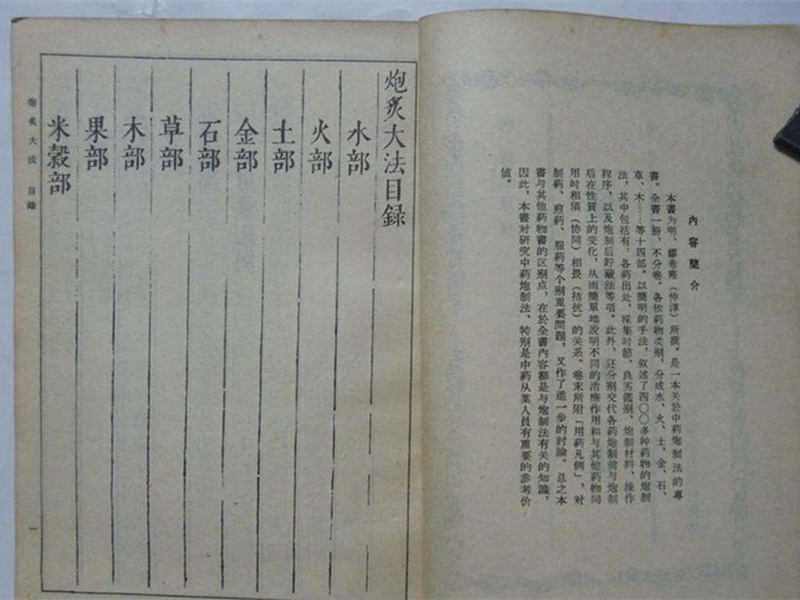 內容簡介
本書为明、繆希雍（仲淳）所撰。是一本关於中药炮制法的專
書。全書一册，不分卷。各依药物类别，分成水、火、土、金、石、
草、木……等十四部。以簡明的手法，叙述了四〇〇多种药物的炮制
法，其中包括有：各药出处、採集时節、良劣鑑别、炮制材料、操作
程序、以及炮制后貯藏法等項。此外，还分别交代各药炮制前与炮制
后在性質上的变化，从而簡單地說明不同的治療作用和与其他药物同
用时相須（协同）相畏（拮抗）的关系。卷末所附「用药凡例」，对
制药、煎药、服药等个别重要問題，又作了進一步的討論。总之本
書与其他药物書的区别点，在於全書內容都是与炮制法有关的知識，
因此，本書对研究中药炮制法、特别是中药从業人員有重要的參考价
値。
炮炙大法目録
水部
火部
土部
金部
石部
草部
木部
果部
米穀部
炮炙大法 目録
一